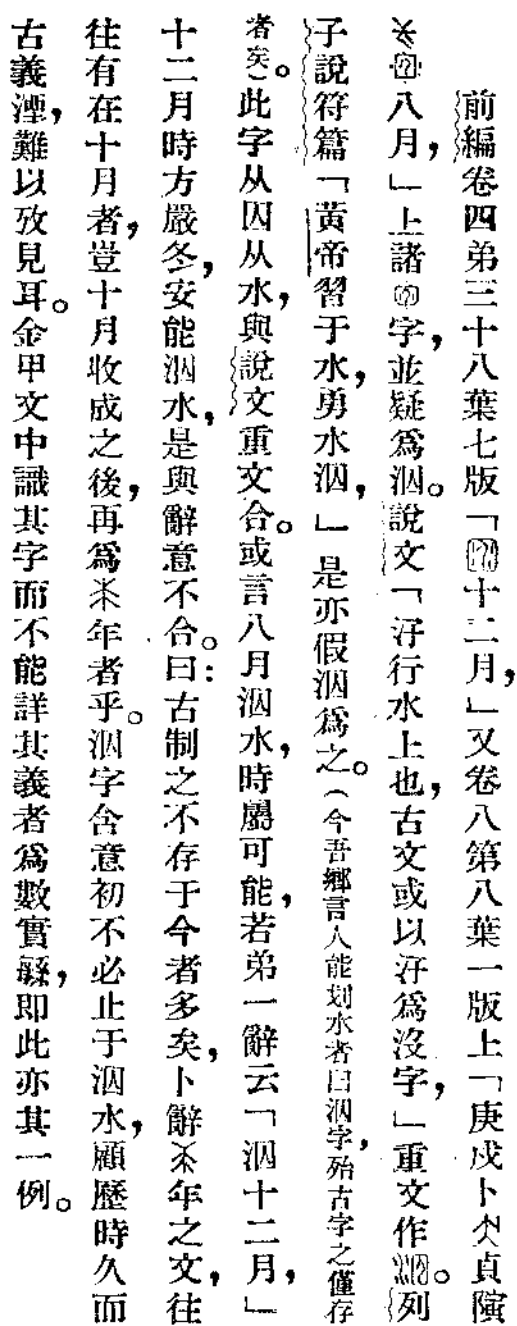 前編卷四弟三十八葉七版「十二月，」又卷八第八葉一版上「庚戌卜貞隫
八月，」上諸字，並疑爲泅。說文「汓行水上也，古文或以汓爲沒字，」重文作泅。列
子說符篇「黃帝習于水，勇水泅，」是亦假泅爲之。（今吾鄉言人能划水者曰泅字，殆古字之僅存
者矣）。此字从囚从水，與說文重文合。或言八月泅水，時屬可能，若弟一辭云「泅十二月，」
十二月時方嚴冬，安能泅水，是與辭意不合。曰：古制之不存于今者多矣，卜辭年之文，往
往有在十月者，豈十月收成之後，再爲年者乎。泅字含意初不必止于泅水，顧歷時久而
古義湮，難以攷見耳。金甲文中識其字而不能詳其義者爲數實緐，即此亦其一例。